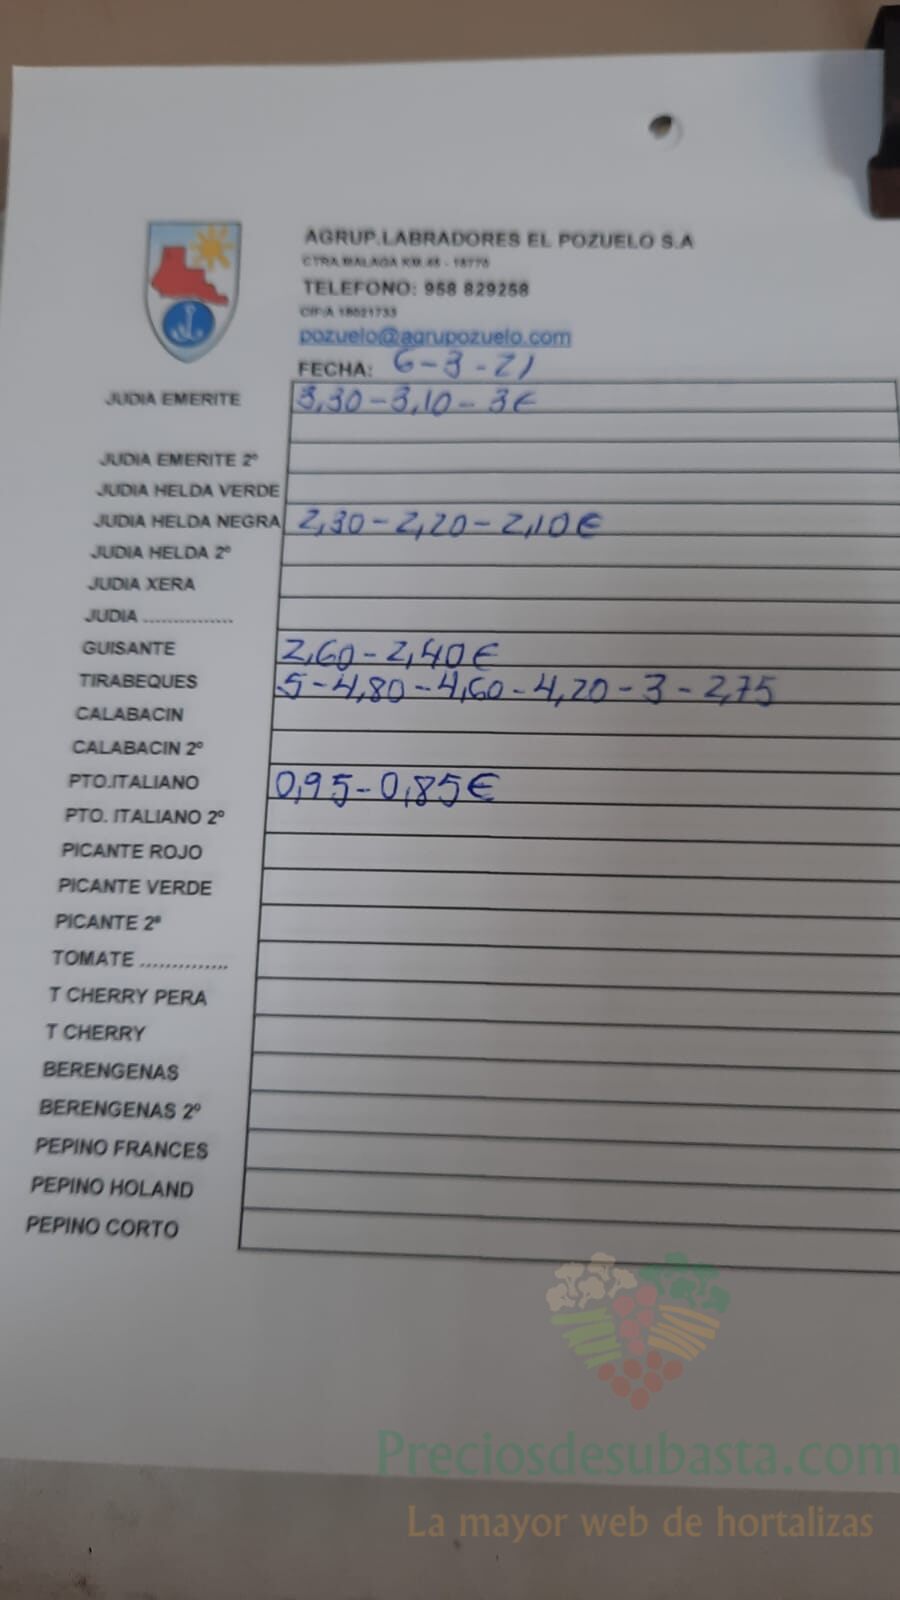 AGRUP.LABRADORES EL POZUELO S.A
CTRA.MALAGA KM.45 - 18770
TELEFONO: 958 829258
CIF:A 18021733
pozuelo@agrupozuelo.com
FECHA: 6-3-21
JUDIA EMERITE 3,30-3,10-3€
JUDIA EMERITE 2º
JUDIA HELDA VERDE
JUDIA HELDA NEGRA 2,30-2,20-2,10€
JUDIA HELDA 2º
JUDIA XERA
JUDIA ...............
GUISANTE 2,60-2,40€
TIRABEQUES 5-4,80-4,60-4,20-3-2,75
CALABACIN
CALABACIN 2º
PTO.ITALIANO 0,95-0,85€
PTO. ITALIANO 2º
PICANTE ROJO
PICANTE VERDE
PICANTE 2ª
TOMATE ..............
T CHERRY PERA
T CHERRY
BERENGENAS
BERENGENAS 2º
PEPINO FRANCES
PEPINO HOLAND
PEPINO CORTO
Preciosdesubasta.com
La mayor web de hortalizas